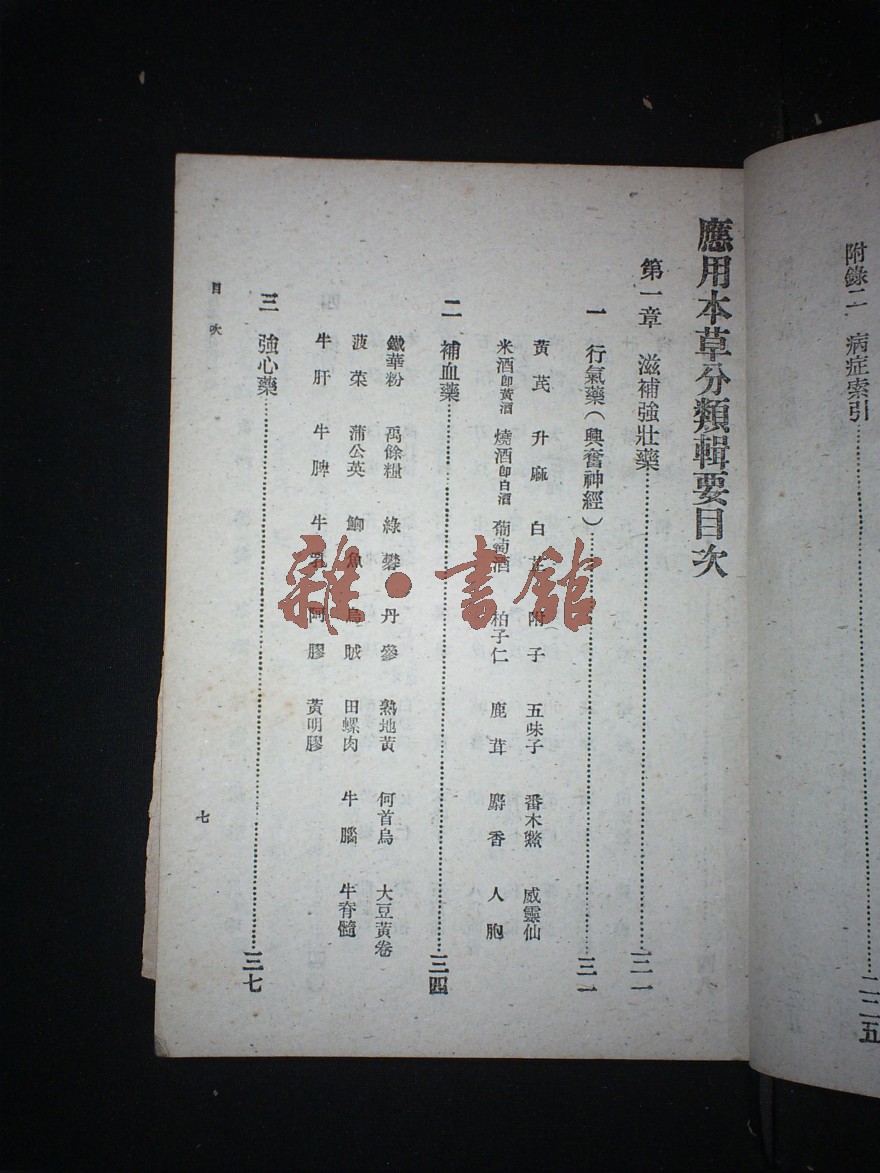 附錄二　病症索引……二二五
應用本草分類輯要目次
第一章　滋補強壯藥……三一
一　行氣藥（興奮神經）……三一
黃芪　升麻　白芷　附子　五味子　番木鱉　威靈仙
米酒即黃酒　燒酒即白酒　葡萄酒　柏子仁　鹿茸　麝香　人胞
二　補血藥……三四
鐵華粉　禹餘糧　綠礬　丹參　熟地黃　何首烏　大豆黃卷
菠菜　蒲公英　鰤魚　烏賊　田螺肉　牛腦　牛脊髓
牛肝　牛脾　牛乳　阿膠　黃明膠
三　強心藥……三七
目次
七
雜·書館